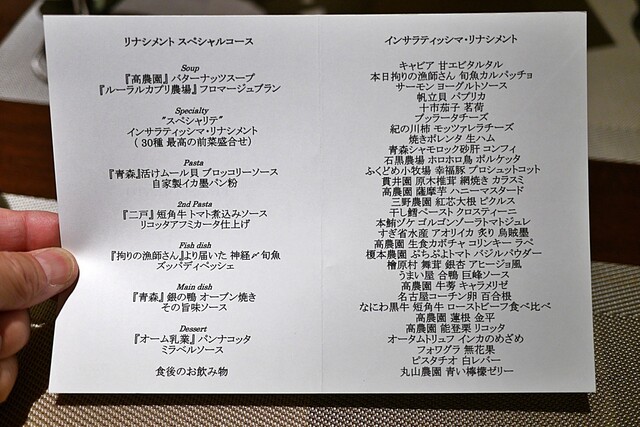 リナシメント スペシャルコース
Soup
『高農園』バターナッツスープ
『ルーラルカプリ農場』フロマージュブラン
Specialty
"スペシャリテ"
インサラティッシマ・リナシメント
( 30種 最高の前菜盛合せ)
Pasta
『青森』活けムール貝 ブロッコリーソース
自家製イカ墨パン粉
2nd Pasta
『二戸』短角牛 トマト煮込みソース
リコッタアフミカータ仕上げ
Fish dish
『拘りの漁師さん』より届いた 神経〆旬魚
ズッパディペッシェ
Main dish
『青森』銀の鴨 オーブン焼き
その旨味ソース
Dessert
『オーム乳業』パンナコッタ
ミラベルソース
食後のお飲み物
インサラティッシマ・リナシメント
キャビア 甘エビタルタル
本日拘りの漁師さん 旬魚カルパッチョ
サーモン ヨーグルトソース
帆立貝 パプリカ
十市茄子 茗荷
ブッラータチーズ
紀の川柿 モッツァレラチーズ
焼きポレンタ 生ハム
青森シャモロック砂肝 コンフィ
石黒農場 ホロホロ鳥 ポルケッタ
ふくどめ小牧場 幸福豚 プロシュットコット
貫井園 原木椎茸 網焼き カラスミ
高農園 薩摩芋 ハニーマスタード
三野農園 紅芯大根 ピクルス
干し鱈ペースト クロスティーニ
本鮪ヅケ ゴルゴンゾーラトマトジュレ
すぎ省水産 アオリイカ 炙り 烏賊墨
高農園 生食カボチャ コリンキー ラペ
榎本農園 ぷちぷよトマト バジルパウダー
檜原村 舞茸 銀杏 アヒージョ風
うまい屋 合鴨 巨峰ソース
高農園 牛蒡 キャラメリゼ
名古屋コーチン卵 百合根
なにわ黒牛 短角牛 ローストビーフ食べ比べ
高農園 蓮根 金平
高農園 能登栗 リコッタ
オータムトリュフ インカのめざめ
フォワグラ 無花果
ピスタチオ 白レバー
丸山農園 青い檸檬ゼリー